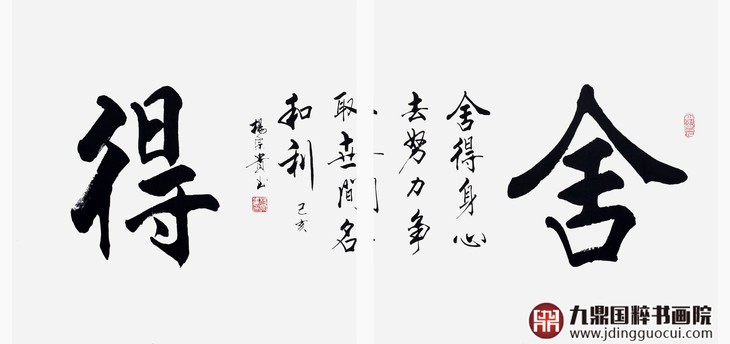 舍
舍得身心
去努力争
取世間名
和利
己亥
楊宗貴书
得
九鼎国粹书画院
www.jdingguocui.com